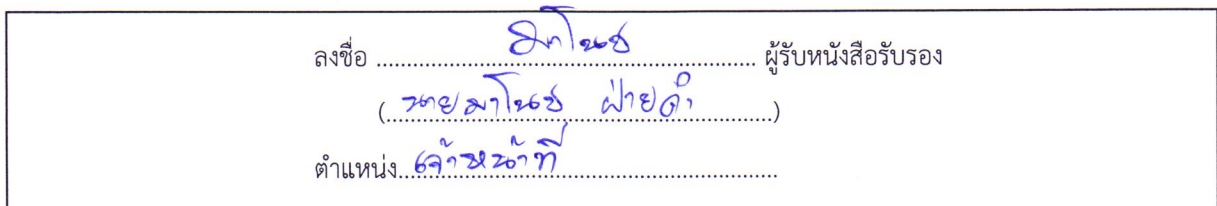 ลงชื่อ มาโนช ผู้รับหนังสือรับรอง
(นายมาโนช ฝ่ายดำ)
ตำแหน่ง เจ้าหน้าที่